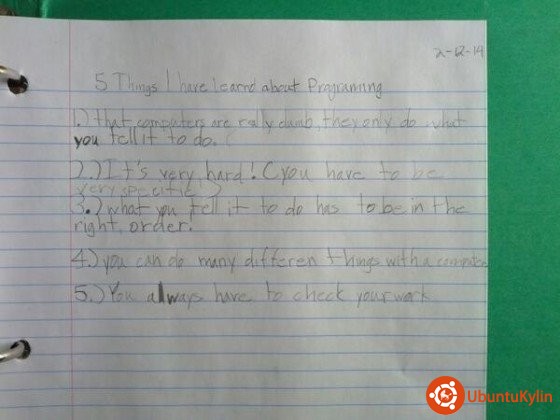 2-12-14
5 Things I have learnd about Programing
1.) that computers are really dumb, they only do what
you tell it to do.
2.) It's very hard! (you have to be
very specific!)
3.) what you tell it to do has to be in the
right order.
4.) you can do many differen things with a computer
5.) You always have to check your work
UbuntuKylin